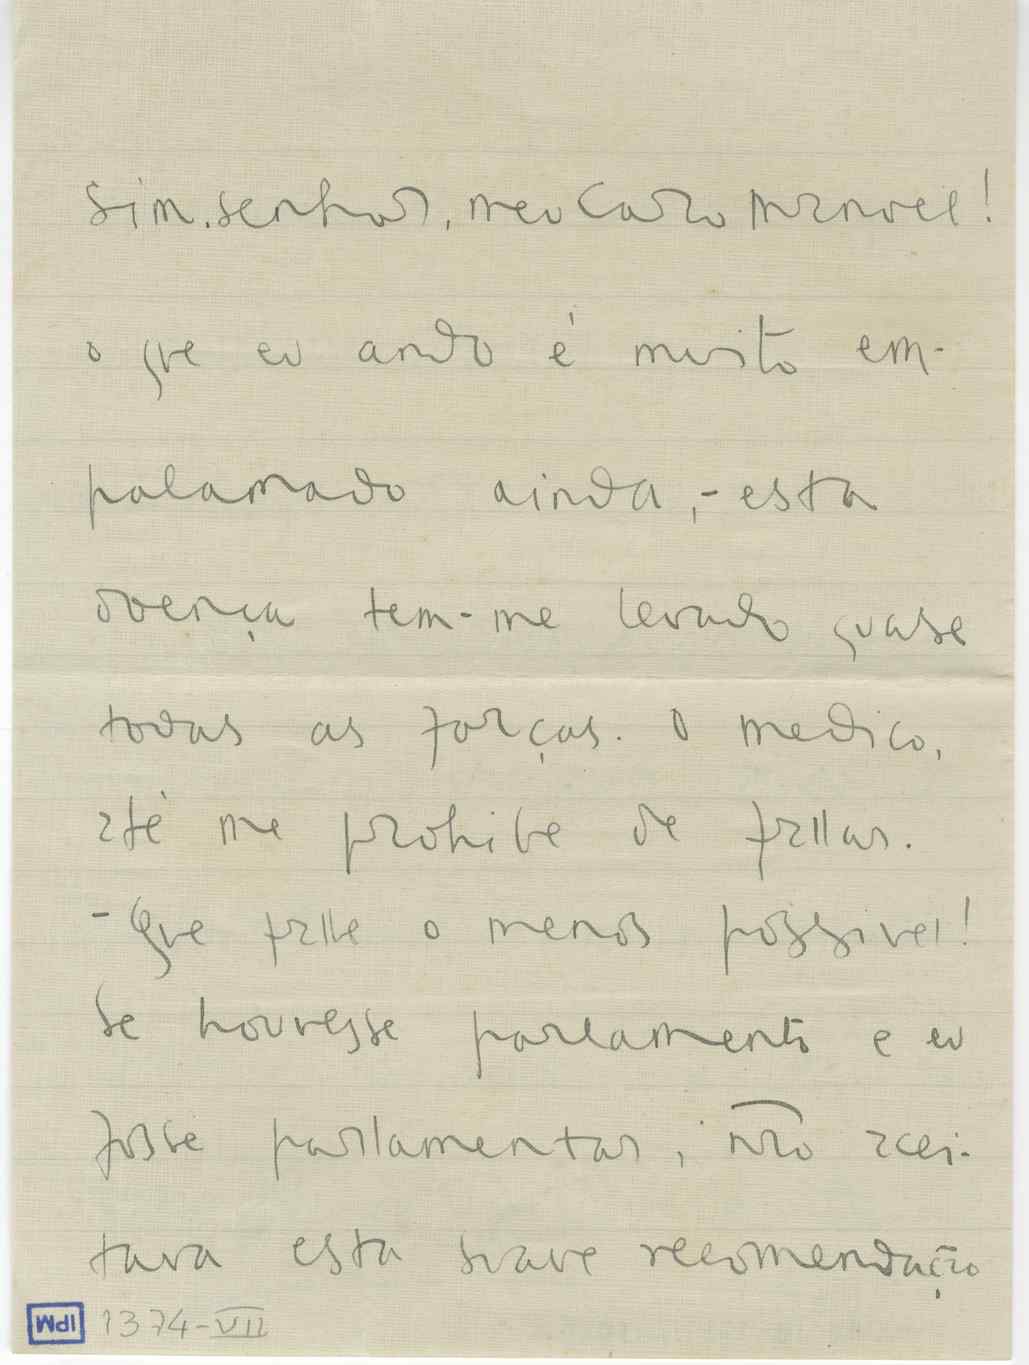 Sim, senhor, meu caro Manoel!
o que eu ando é muito em-
palamado ainda, - esta
doença tem-me levado quase
todas as forças. O medico,
até me prohibe de fallar.
- Que falle o menos possivel!
Se houvesse parlamento e eu
fosse parlamentar, não acei-
tava esta suave recomendação
IPM 1374-VII